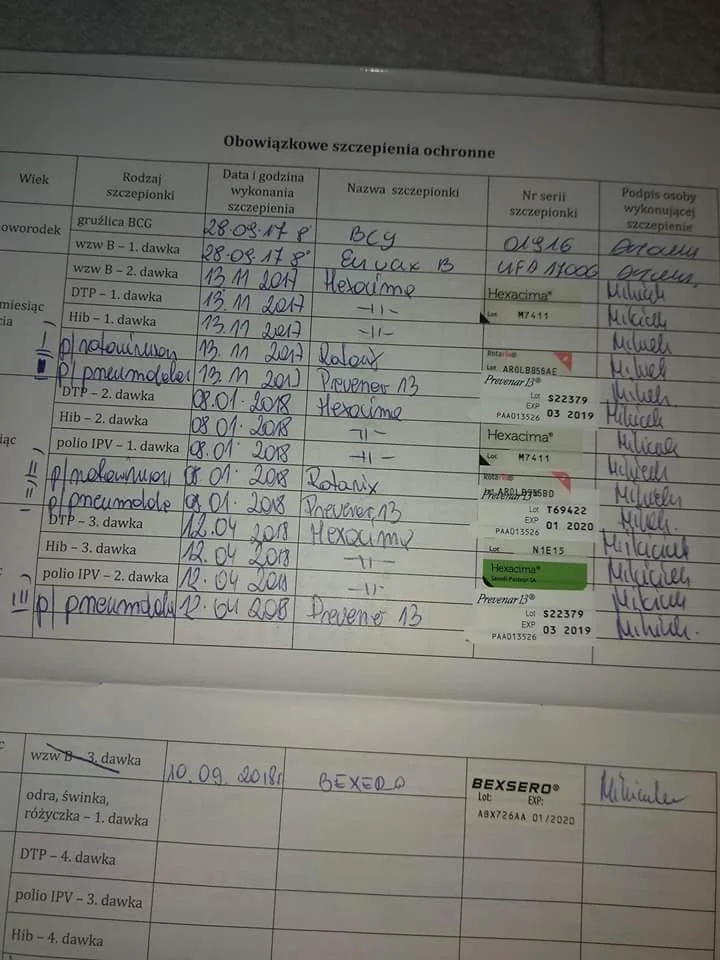 Obowiązkowe szczepienia ochronne
Wiek Rodzaj szczepionki Data i godzina wykonania szczepienia Nazwa szczepionki Nr serii szczepionki Podpis osoby wykonującej szczepienie
oworodek gruźlica BCG 28.09.17 8 BCG 01916
wzw B – 1. dawka 28.09.17 8 Euvax B UFA 17006
wzw B – 2. dawka 13.11 2017 Hexacima
miesiąc DTP – 1. dawka 13.11 2017 –||– Hexacima®
cia Hib – 1. dawka 13.11 2017 –||– Lot M7411
I p/rotawirusom 13.11 2017 Rotarix Rotarix®
II p/pneumokoko 13.11 2017 Prevenar 13 Lot AROLB855AE
Prevenar 13®
DTP – 2. dawka 08.01.2018 Hexacima Lot S22379
Hib – 2. dawka 08.01.2018 –||– PAA013526 EXP 03 2019
iąc polio IPV – 1. dawka 08.01.2018 –||– Hexacima®
Lot M7411
p/rotawirusom 08.01.2018 Rotarix Rotarix®
p/pneumokoko 08.01.2018 Prevenar 13 Prevenar 13®
Lot T69422
PAA013526 EXP 01 2020
DTP – 3. dawka 12.04 2018 Hexacima
Hib – 3. dawka 12.04 2018 –||– Lot N1E15
polio IPV – 2. dawka 12.04 2018 –||– Hexacima®
Sanofi Pasteur SA
III p/pneumokoko 12.04 208 Prevenar 13 Prevenar 13®
Lot S22379
PAA013526 EXP 03 2019
wzw B – 3. dawka 10.09.2018r BEXERO BEXSERO®
Lot: EXP:
ABX726AA 01/2020
odra, świnka,
różyczka – 1. dawka
DTP – 4. dawka
polio IPV – 3. dawka
Hib – 4. dawka